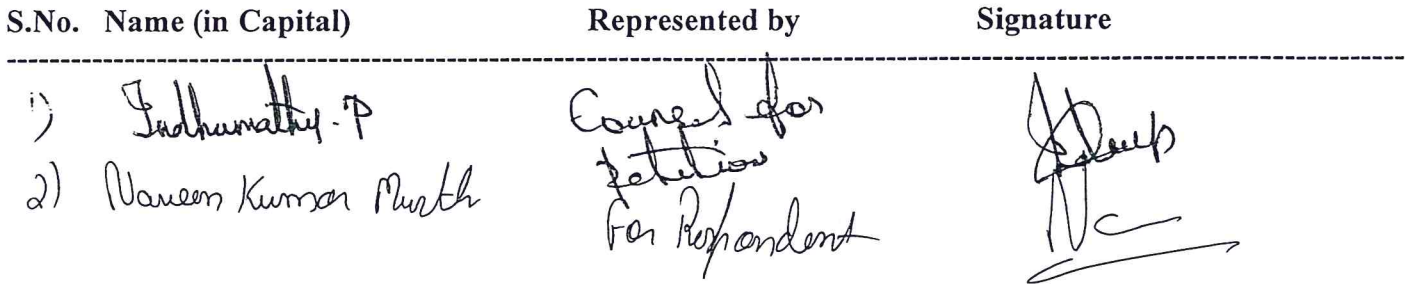 S.No. Name (in Capital) Represented by Signature
1) Indhumathy.P Counsel for
petition
2) Naveen Kumar Murth For Respondent